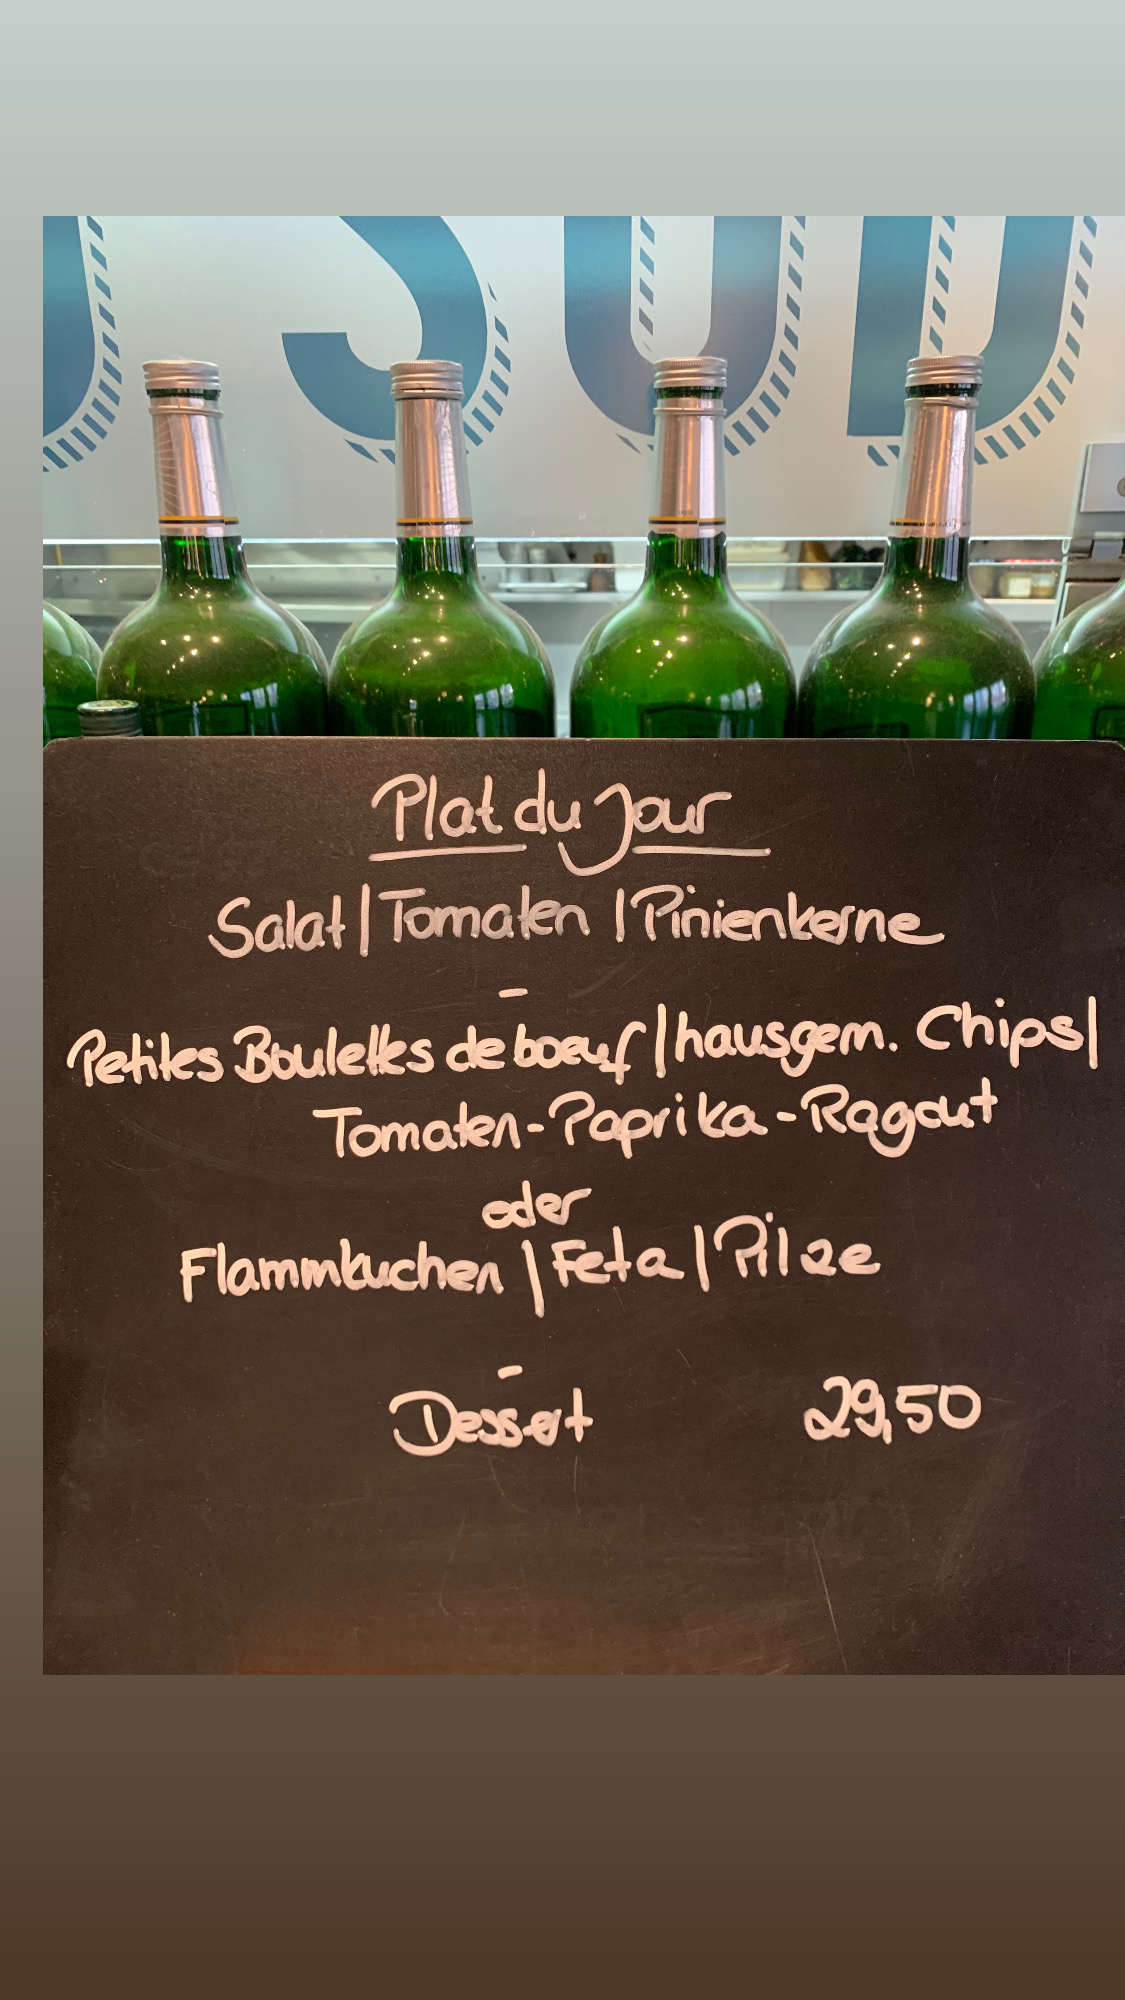 SUD
Plat du Jour
Salat | Tomaten | Pinienkerne
-
Petites Boulettes de boeuf | hausgem. Chips |
Tomaten-Paprika-Ragout
oder
Flammkuchen | Feta | Pilze
-
Dessert 29,50